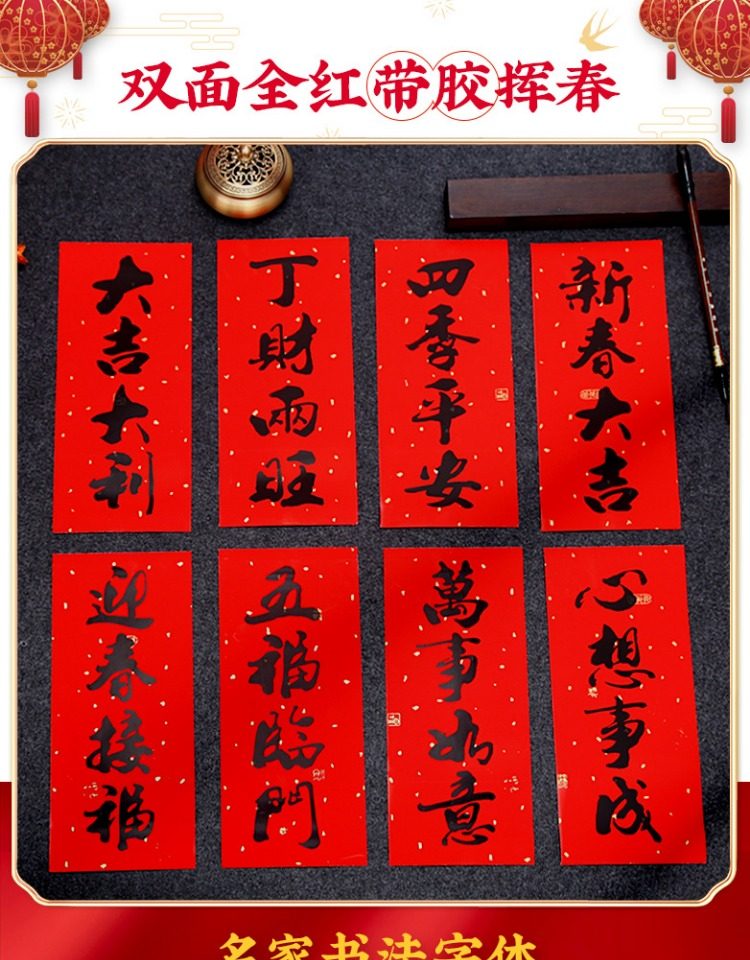 双面全红带胶挥春
大吉大利
丁财兩旺
四季平安
新春大吉
迎春接福
五福臨門
萬事如意
心想事成
名家书法字体